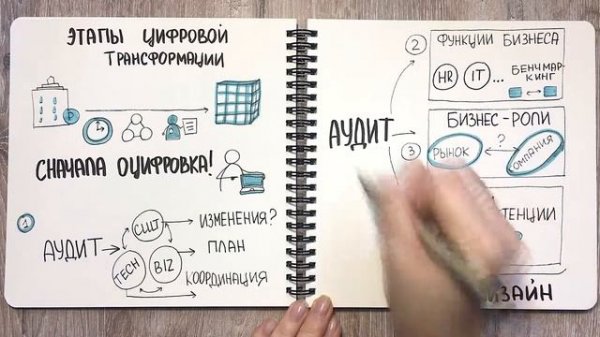 ЭТАПЫ ЦИФРОВОЙ
ТРАНСФОРМАЦИИ
СНАЧАЛА ОЦИФРОВКА!
1
АУДИТ
CULT
TECH
BIZ
ИЗМЕНЕНИЯ?
ПЛАН
КООРДИНАЦИЯ
АУДИТ
2
ФУНКЦИИ БИЗНЕСА
HR
IT
...
БЕНЧМАР-
КИНГ
3
БИЗНЕС-РОЛИ
РЫНОК
?